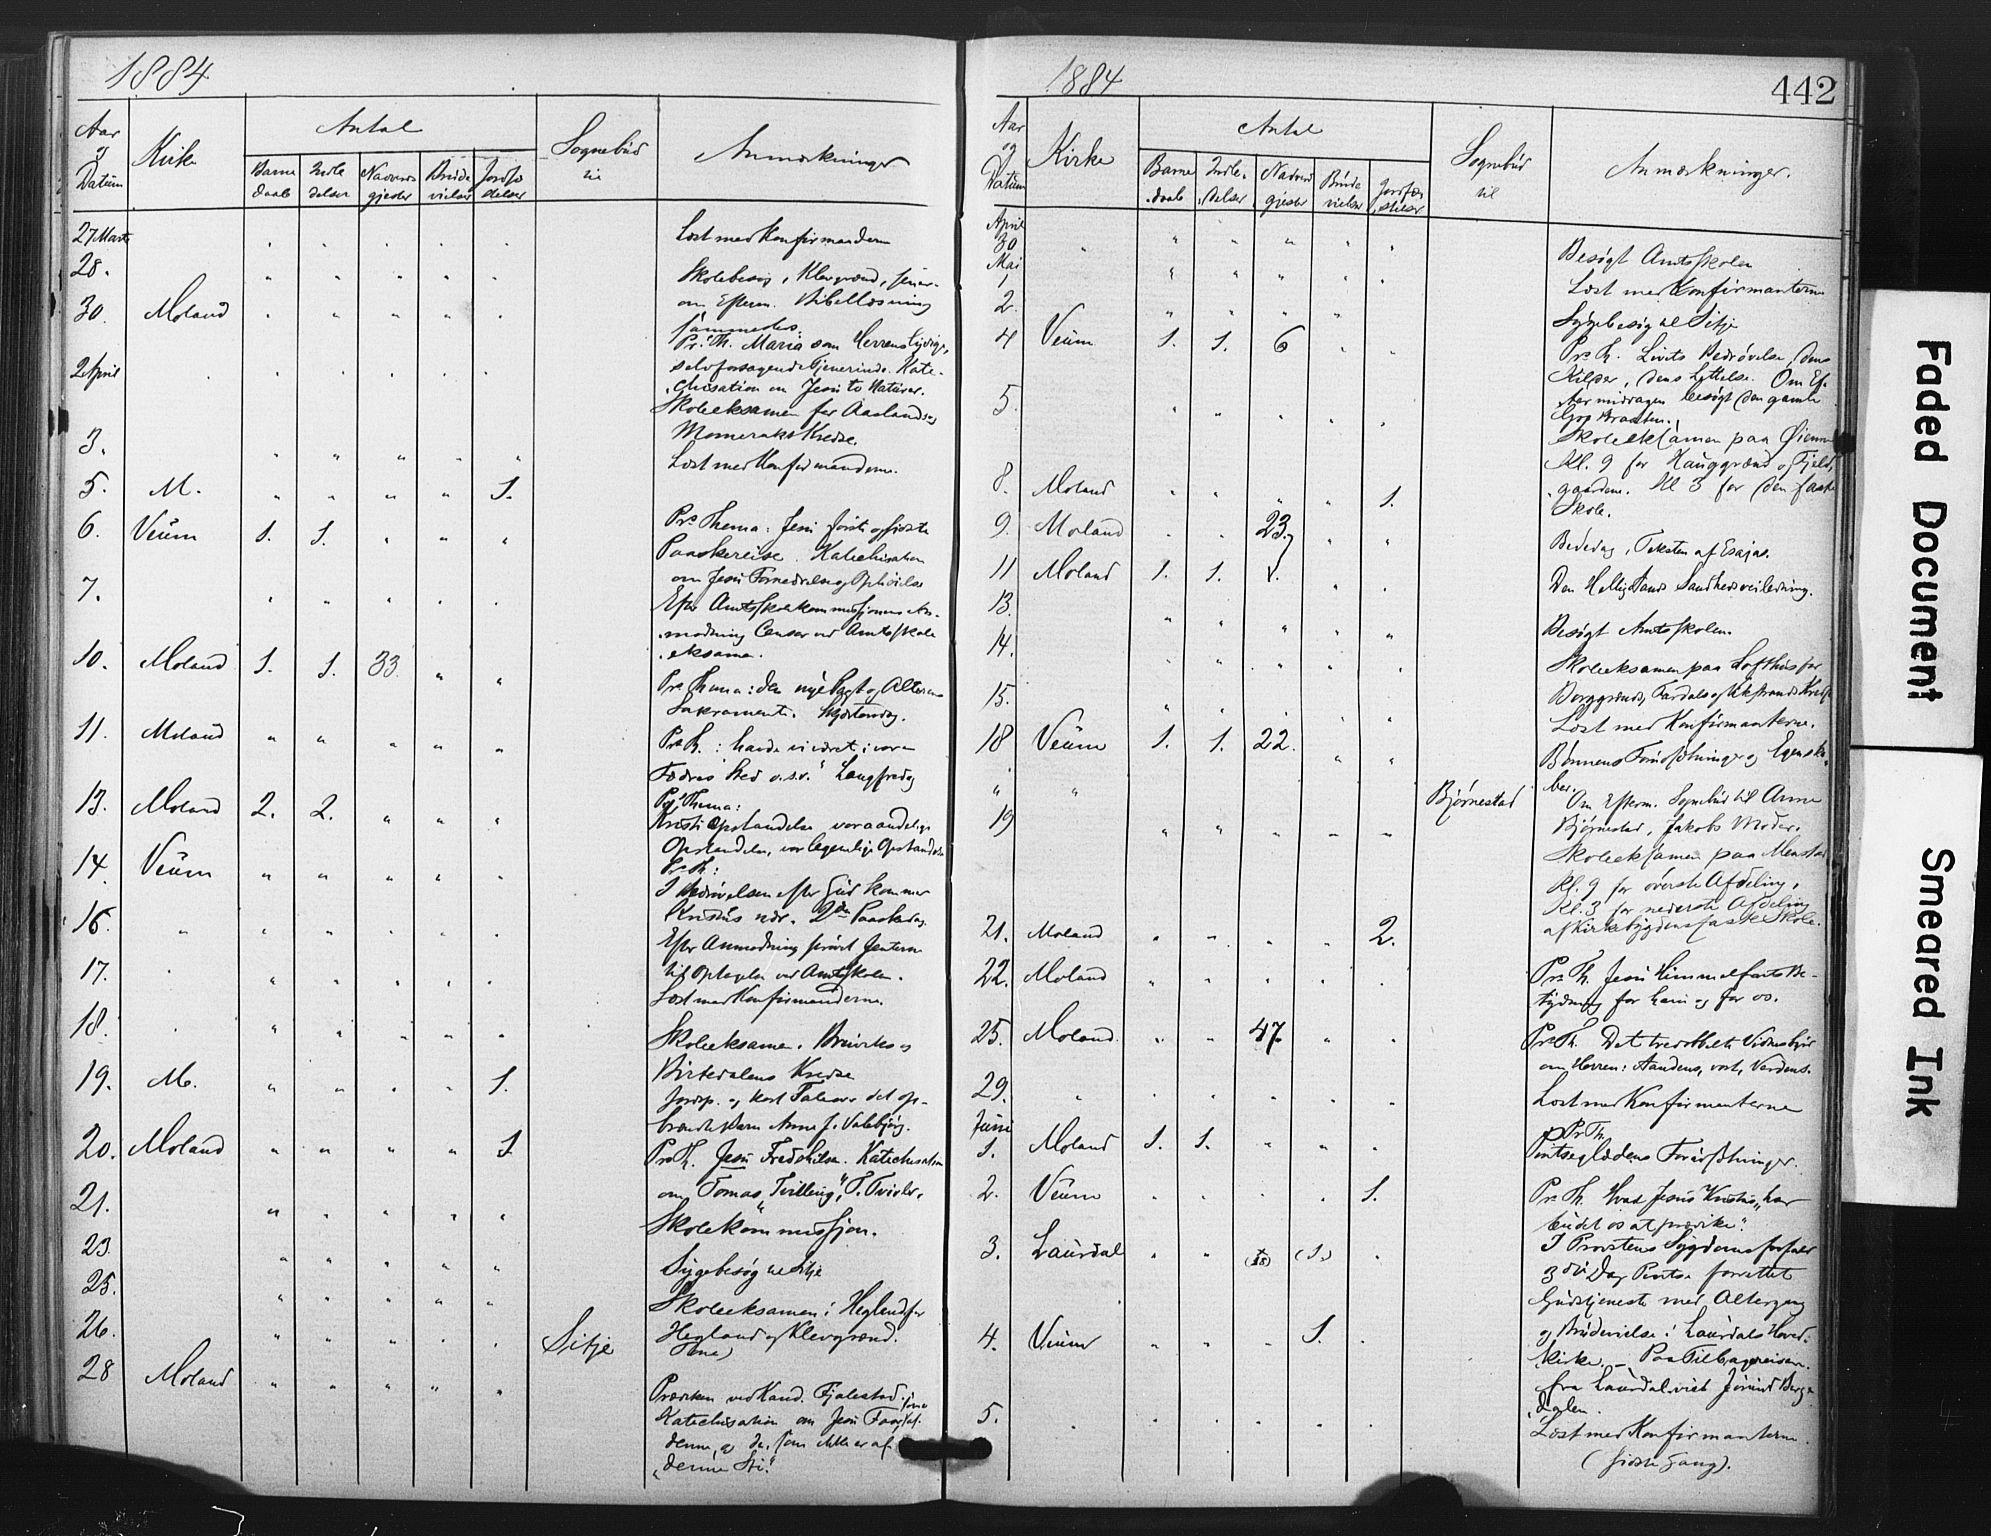 1884
Aar og Datum Kirke Antal Sognebud til Anmærkninger
Barne daab Indle delser Nadverd gjester Brude vielser Jordfæ stelser
27 Marts " " " " " Læst med Konfirmanderne
28. " " " " " Skolebesøg i Klevgrænd,
30. Moland " " " " " om Efterm. Bibellæsning
sammesteds.
Pr. Th. Maria som Herrens lydige,
2 April " " " " " selvforsagende Tjenerinde. Kate-
chisation om Jesu to Naturer.
Skoleeksamen for Aaslands og
Momraks Kredse.
3. " " " " " Læst med Konfirmanderne.
5. M. " " " " 1.
6. Veum 1. 1. " " " Pr. Thema: Jesu første og sidste
Paaskereise. Katechisation
om Jesu Fornedrelse og Ophøielse
7. " " " " " Efter Amtsskolekommissionens An-
modning Censor ved Amtsskole
eksamen.
10. Moland 1. 1. 33. " " Pr. Thema: den nye Pagt og Alterens
Sakramente. Skjærtorsdag.
11. Moland " " " " " Pr. Th.: havde vi været i vore
Fædres Sted o.s.v." Langfredag
13. Moland 2. 2. " " " Pr. Thema:
Kristi Opstandelse vor aandelige
Opstandelse, vor legemlige Opstandelse
14. Veum " " " " " Pr. Th:
I Bedrøvelsen efter Gud kommer
Kristus nær. 2den Paaskedag
16. " " " " " " Efter Anmodning prøvet Jenterne
til Optagelse ved Amtsskolen.
17. " " " " " " Læst med Konfirmanderne.
18. " " " " " " Skoleeksamen i Breiviks og
Birtedalens Kredse
19. M. " " " " 1. Jordp. og kort Tale over det op-
brændte Barn Anne J. Valebjørg.
20. Moland " " " " 1. Pr. Th. Jesu Fredshilsen. Katechisation
om Tomas, "Tvilling", T. Tvivler.
21. " " " " " Skolekommission.
23. " " " " " Sygebesøg til Sitje
25. " " " " " Skoleeksamen i Hegland for
Hegland og Klevgrænd.
26. " " " " " Sitje
28 Moland " " " " " Præken ved Kand. Fjalestad.
Katechisation om Jesu Faar af
denne, og de, som ikke er af
"denne Sti."
1884 442
Aar og Datum Kirke Antal Sognebud til Anmærkninger.
Barne daab Indle delser Nadverd gjester Brude vielser Jordfæ stelser
April
30 " " " " " " Besøgt Amtsskolen
Mai
1 " " " " " Læst med Konfirmanterne
2. " " " " Sygebesøg til Sitje
4 Veum 1. 1. 6 " " Pr. Th. Livets Bedrøvelse, dens
Kilder, dens Lettelse. Om Ef-
termiddagen besøgt den gamle
Braaten.
5. " " " " " Skoleeksamen paa Øien
Kl. 9 for Hauggrænd og Fjeld-
gaardene. Kl 3 for den faste
Skole.
8. Moland " " " " 1.
9. Moland " " 23. " " Bededag, Teksten af Esajas.
11 Moland 1. 1. " " Den Hellig Aands Sandhedsveiledning.
13. " " " " " Besøgt Amtsskolen.
14. " " " " " Skoleeksamen paa Lofthus for
Borggrænds, Fardals og Vikstrands Kredse
15. " " " " " Læst med Konfirmanterne.
18 Veum 1. 1. 22. " " Bønnens Forudsætninger og Egenska-
ber.
" " Bjørnestad Om Efterm. Sognebud til Anne
Bjørnestad, Jakobs Moder.
19 " " " " " Skoleeksamen paa Menstad
Kl. 9 for øverste Afdeling,
Kl. 3 for nederste Afdeling
af Kirkebygdens faste Skole.
21. Moland " " " " 2.
22. Moland " " " " " Pr. Th. Jesu Himmelfarts Be-
tydning for ham og for os.
25. Moland " " 47. " " Pr. Th. Det tredobbelte Vidnesbyrd
om Herren: Aandens, vort, Verdens.
29. " " " " " " Læst med Konfirmanterne
Juni
1. Moland 1. 1. " " " Pr Th.
Pintseglædens Forudsætninger.
2. Veum " " " " 1. Pr. Th. Hvad Jesus Kristus "har
budet os at prædike".
3. Laurdal " " (18) (1) " I Provstens Sygdomsforfald
3die Dag Pintse forrettet
Gudstjeneste med Altergang
og Brudevielse i Laurdals Hoved-
4. Veum " " " 1. " kirke. — Paa Tilbagereisen
fra Laurdal viet Jørund Berge
dalen.
5. " " " " " " Læst med Konfirmanterne.
(sidste Gang).
Faded Document
Smeared Ink